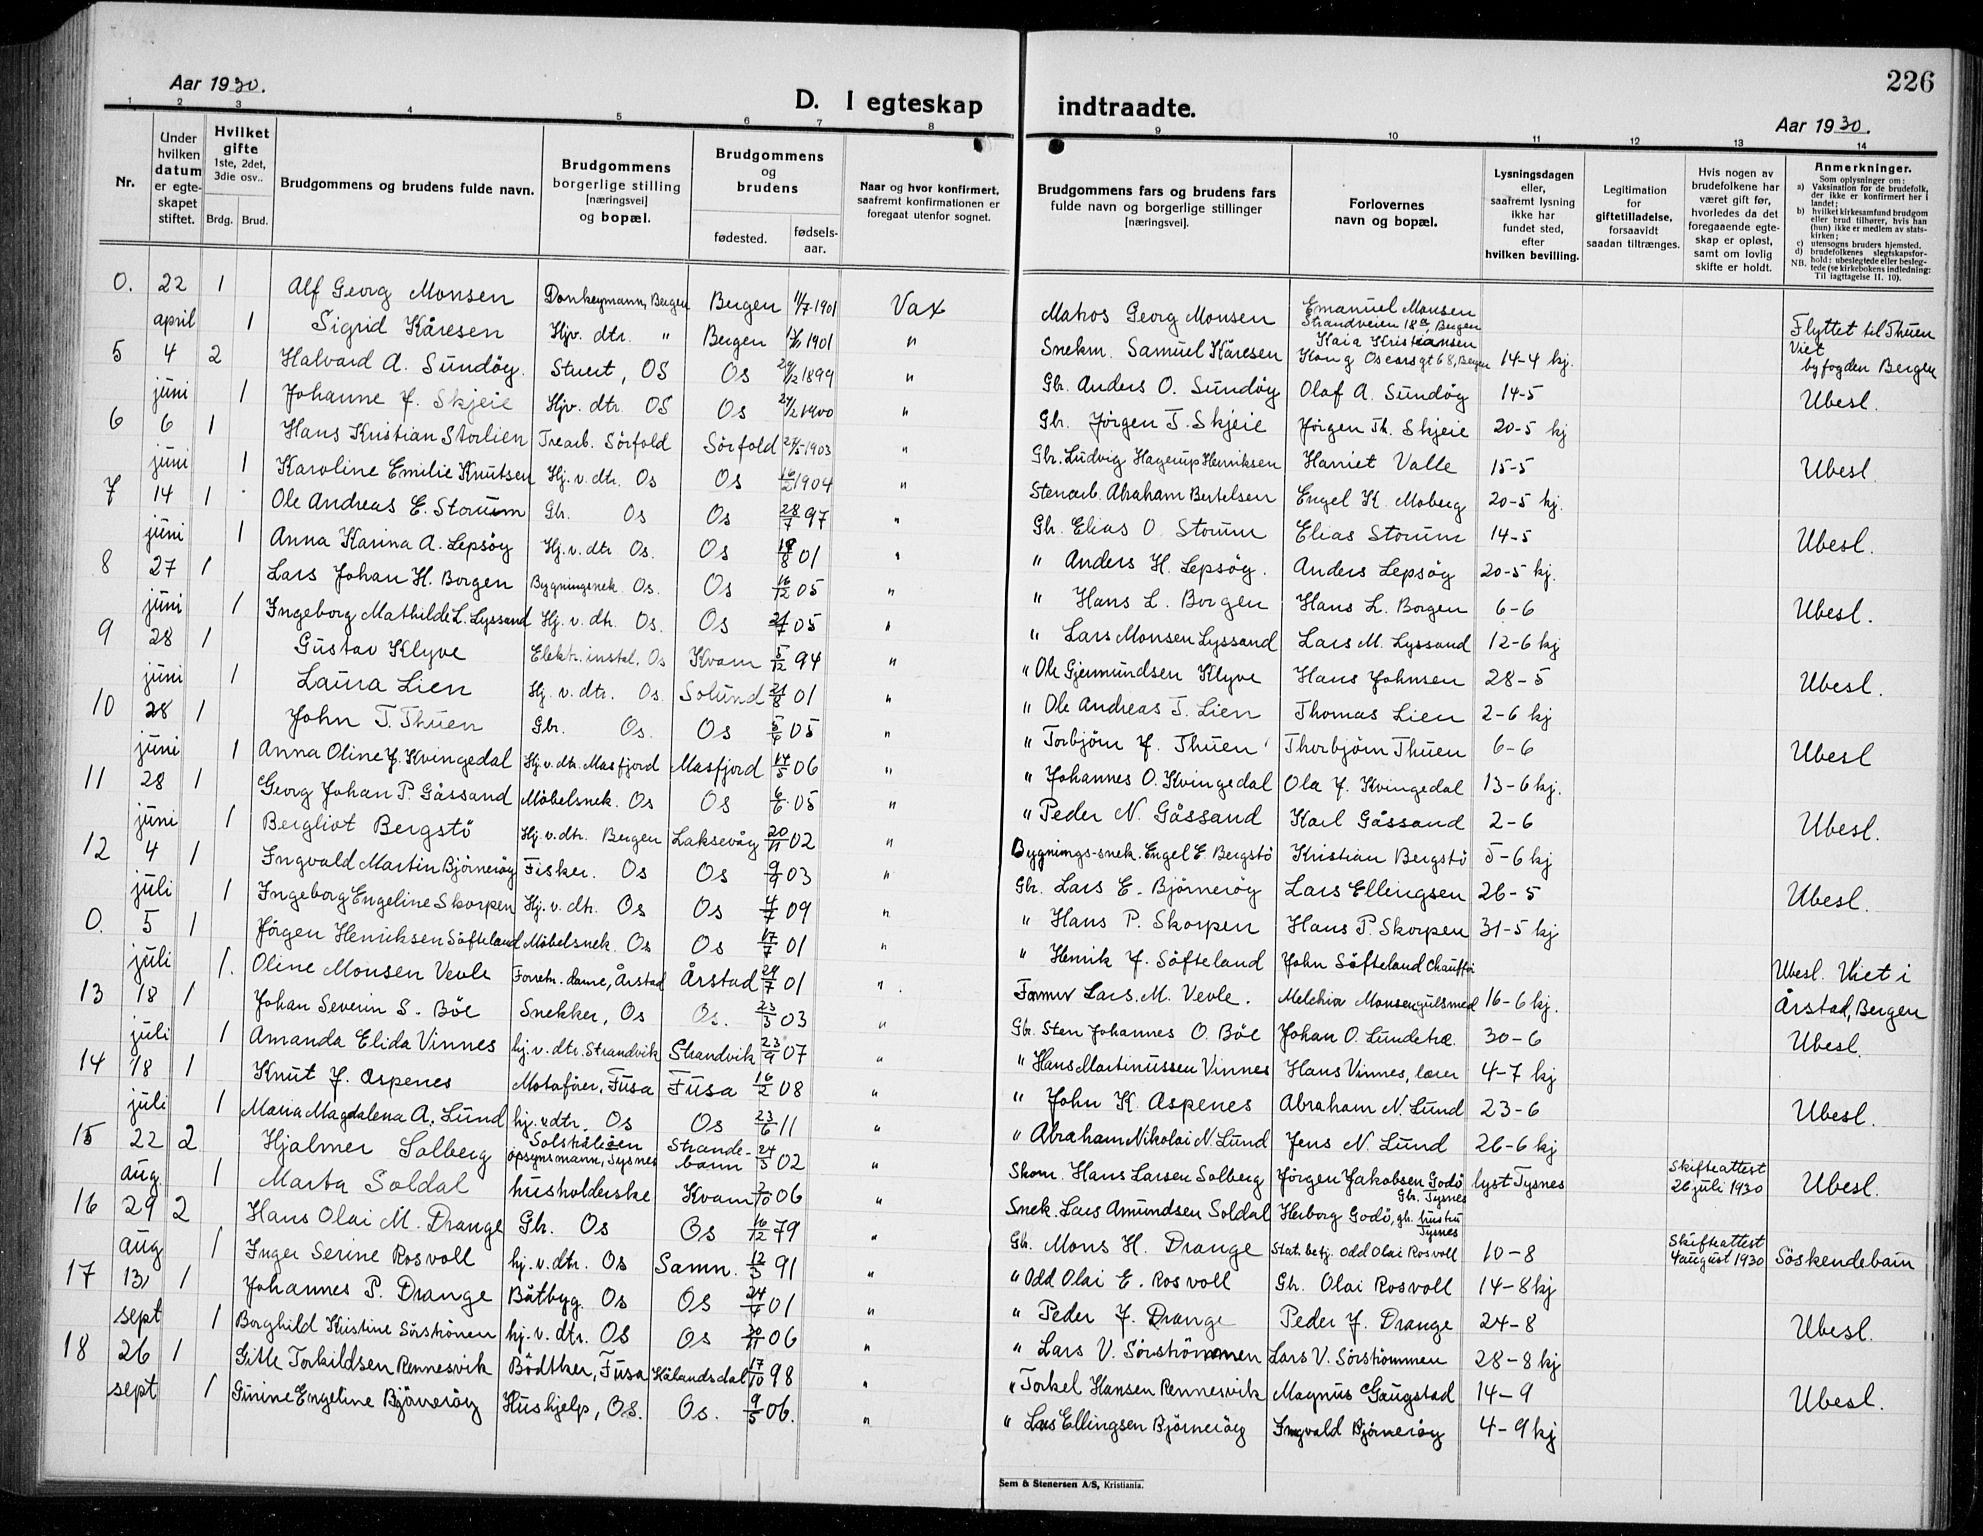 226
Aar 1930.
D. I egteskap indtraadte.
Aar 1930.
1 2 3 4 5 6 7 8 9 10 11 12 13 14
Nr.
Under hvilken datum er egte-skapet stiftet.
Hvilket gifte 1ste, 2det, 3die osv..
Brdg. Brud.
Brudgommens og brudens fulde navn.
Brudgommens borgerlige stilling [næringsvei] og bopæl.
Brudgommens og brudens
fødested. fødsels-aar.
Naar og hvor konfirmert, saafremt konfirmationen er foregaat utenfor sognet.
Brudgommens fars og brudens fars fulde navn og borgerlige stillinger [næringsvei].
Forlovernes navn og bopæl.
Lysningsdagen eller, saafremt lysning ikke har fundet sted, efter hvilken bevilling.
Legitimation for giftetilladelse, forsaavidt saadan tiltrænges.
Hvis nogen av brudefolkene har været gift før, hvorledes da det foregaaende egte-skap er opløst, samt om lovlig skifte er holdt.
Anmerkninger.
Som oplysninger om:
a) Vaksination for de brudefolk, der ikke er konfirmert her i landet;
b) hvilket kirkesamfund brudgom eller brud tilhører, hvis han (hun) ikke er medlem av stats-kirken;
c) utensogns bruders hjemsted.
d) brudefolkenes slegtskapsfor-hold: ubeslegtede eller besleg-tede (se kirkebokens indledning: Til iagttagelse II. 10).
NB.
0. 22 april 1 Alf Georg Monsen Donkeymann, Bergen Bergen 11/7-1901 Vax Matros Georg Monsen Emanuel Monsen Strandveien 18a, Bergen
1 Sigrid Kåresen Hjv. dtr. " Bergen 1901 " Snekm. Samuel Kåresen Kaia Kristiansen Kong Oscarsgt 68, Bergen 14-4 kj. Flyttet til Thuen Viet byfogden Bergen
5 4 juni 2 Halvard A. Sundöy. Stuert, OS Os 1899 " Gbr. Anders O. Sundöy Olaf A. Sundöy 14-5
1 Johanne J. Skjeie Hjv. dtr. OS Os 1900 " Gbr. Jörgen T. Skjeie Jörgen Th. Skjeie 20-5 kj Ubesl.
6 6 juni 1 Hans Kristian Storlien Trearb. Sörfold Sörfold 1903 " Gbr. Ludvig Hagerup Henriksen Harriet Valle 15-5
1 Karoline Emilie Knutsen Hj. v. dtr. Os Os 16/2 1904 " Stenarb. Abraham Bertelsen Engel K. Moberg 20-5 kj. Ubesl.
7 14 juni 1 Ole Andreas E. Storum Gbr. Os Os 28/7 97 " Gbr. Elias O. Storum Elias Storum 14-5
1 Anna Karina A. Lepsöy Hj. v. dtr Os. Os 01 " " Anders H. Lepsöy. Anders Lepsöy 20-5 kj. Ubesl.
8 27 juni 1 Lars Johan H. Borgen Bygningsnek. Os. Os 16/12 05 " " Hans L. Borgen Hans L. Borgen 6-6
1 Ingeborg Mathilde L. Lyssand Hj. v. dtr. Os. Os 05 " " Lars Monsen Lyssand Lars M. Lyssand 12-6 kj Ubesl.
9 28 juni 1 Gustav Klyve Elektr. instal. Os Kvam 5/12 94 " " Ole Gjermundsen Klyve Hans Johnsen 28-5
1 Laura Lien Hj. v. dtr. Os. Solund 01 " " Ole Andreas T. Lien Thomas Lien 2-6 kj Ubesl.
10 28 juni 1 John T. Thuen Gbr. Os. Os 05 " " Torbjörn J. Thuen Thorbjörn Thuen 6-6
1 Anna Oline J. Kvingedal Hj. v. dtr. Masfjord Masfjord 17/5 06 " " Johannes O. Kvingedal Ola J. Kvingedal 13-6 kj. Ubesl
11 28 juni 1 Georg Johan P. Gåssand Möbelsnek. Os Os 6/6 05 " " Peder N. Gåssand Karl Gåssand 2-6
1 Bergliot Bergstö Hj. v. dtr. Bergen Laksevåg 20/11 02 " Bygnings-snek. Engel E. Bergstö Kristian Bergstö 5-6 kj Ubesl.
12 4 juli 1 Ingvald Martin Björneröy Fisker. Os Os 9/9 03 " Gbr. Lars E. Björneröy Lars Ellingsen 26-5
1 Ingeborg Engeline Skorpen Hj. v. dtr. Os Os 4/7 09 " " Hans P. Skorpen Hans P. Skorpen 31-5 kj Ubesl.
0. 5 juli 1 Jörgen Henriksen Söfteland Möbelsnek. Os Os 17/7 01 " " Henrik J. Söfteland John Söfteland Chaufför
1. Oline Monsen Vevle Forretn. dame, Årstad Årstad 01 ". Farmer Lars. M. Vevle. Melchior Monsen gulsmed 16-6 kj. Ubesl. Viet i Årstad, Bergen
13 18 juli 1 Johan Severin S. Böe Snekker, Os Os. 23/3 03 " Gbr. Sten Johannes O. Böe Johan O. Lundetræ. 30-6
1 Amanda Elida Vinnes hj. v. dtr. Strandvik Strandvik 23/9 07 " " Hans Martinussen Vinnes Hans Vinnes, lærer 4-7 kj Ubesl.
14 18 juli 1 Knut J. Aspenes Motorförer, Fusa Fusa 16/2 08 " " John K. Aspenes Abraham N. Lund 23-6
1 Maria Magdalena A. Lund hj. v. dtr. Os Os 23/6 11 " " Abraham Nikolai N. Lund Jens N. Lund 26-6 kj Ubesl.
15 22 aug. 2 Hjalmer Solberg opsynsmann, Tysnes Strande-barm 02 " Skom. Hans Larsen Solberg Jörgen Jakobsen Godö Gbr. Tysnes lyst Tysnes Skifteattest 26 juli 1930 Ubesl.
1 Marta Soldal husholderske Kvam 2/10 06 " Snek. Lars Amundsen Soldal Herborg Godö, gbr. hustru Tysnes
16 29 aug 2 Hans Olai M. Drange Gbr. Os Os 16/12 79 " Gbr. Mons H. Drange Stat. betj. Odd Olai Rosvoll 10-8 Skifteattest 4 august 1930 Söskendebarn
1 Inger Serine Rosvoll hj. v. dtr. Os Samn. 12/3 91 " " Odd Olai E. Rosvoll Gbr. Olai Rosvoll 14-8 kj
17 13 sept 1 Johannes P. Drange Båtbyg. Os Os 01 " " Peder J. Drange Peder J. Drange 24-8
1 Borghild Kristine Sörströnen hj. v. dtr. Os Os 06 " " Lars V. Sörströmmen Lars V. Sörströmmen 28-8 kj Ubesl.
18 26 sept 1 Gitle Torkildsen Rennesvik Bödtker, Fusa Hålandsdal 17/10 98 " " Torkel Hansen Rennesvik Magnus Gaugstad 14-9
1 Gurine Engeline Björneröy Hushjelp, Os. Os. 9/5 06. " " Lars Ellingsen Björneröy Ingvald Björneröy 4-9 kj Ubesl.
Sem & Stenersen A/S, Kristiania.